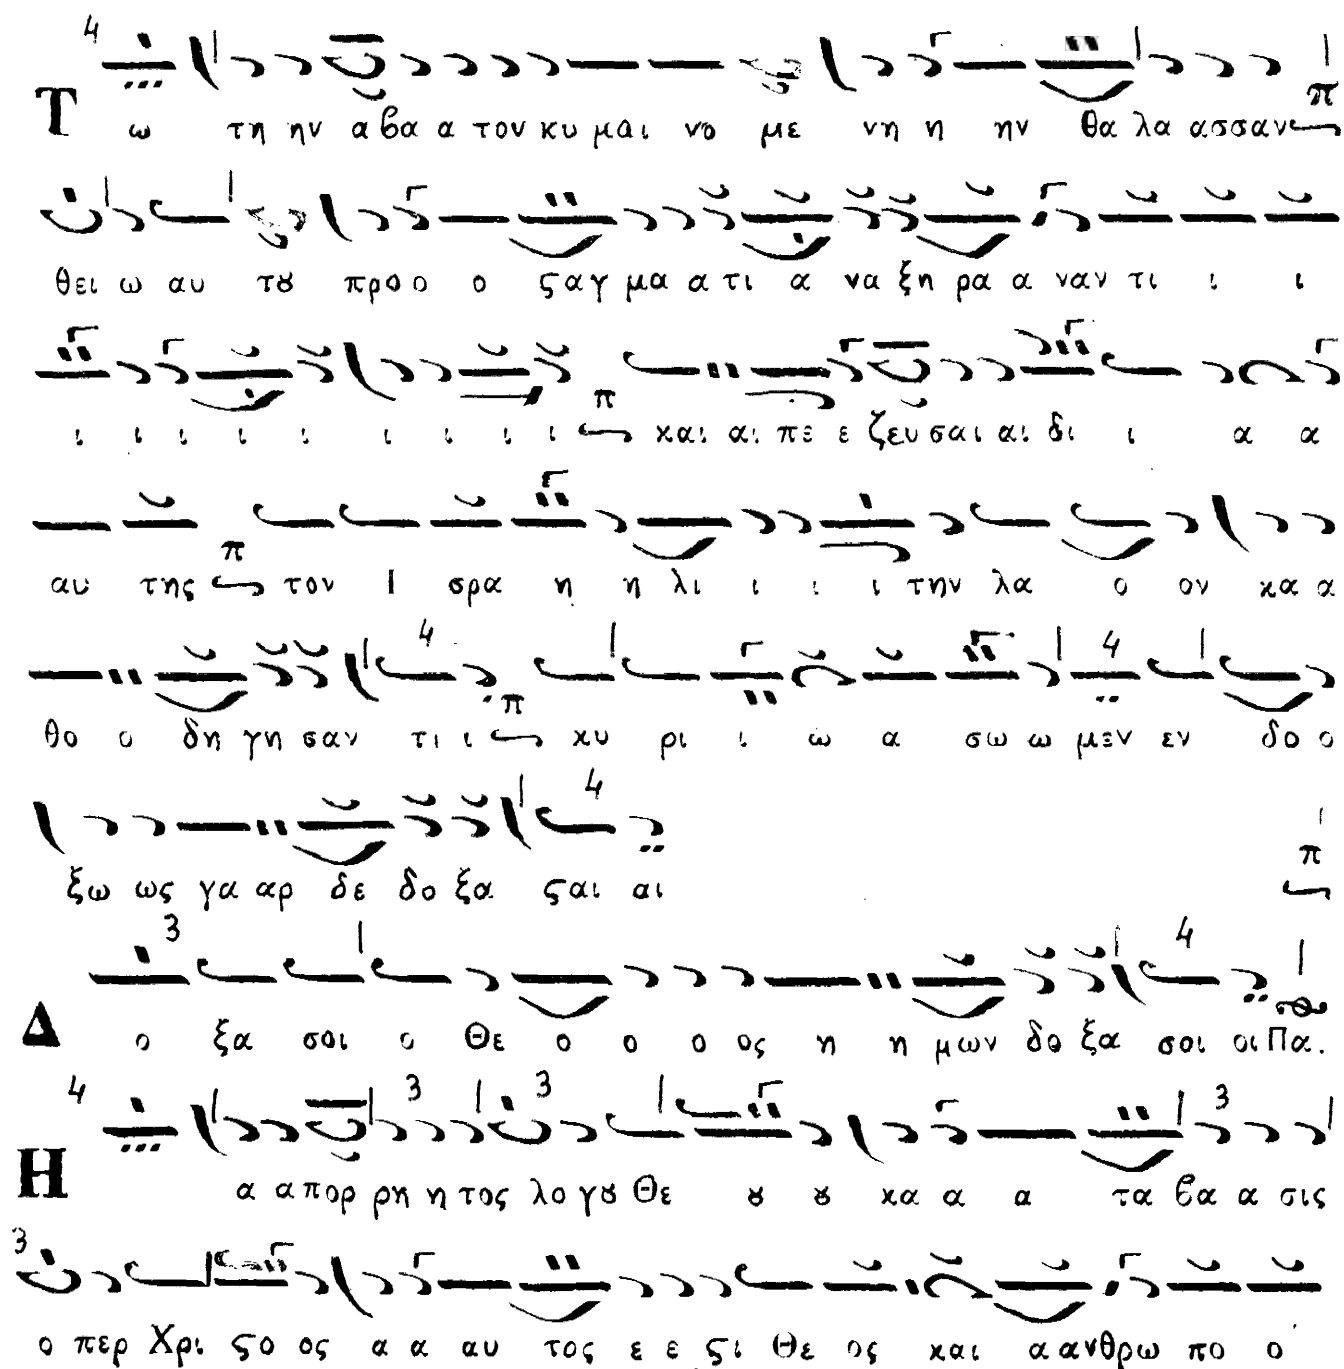 Τω τη ην α βα α τον κυ μαι νο με νη η ην θα λα ασσαν
θει ω αυ τȣ προ ο ο ϛαγ μα α τι α να ξη ρα α ναν τι ι ι
ι ι ι ι ι ι ι ι ι και αι πε ε ζευ σαι αι δι ι α α
αυ της τον Ι σρα η η λι ι ι ι την λα ο ον κα α
θο ο δη γη σαν τι ι κυ ρι ι ω α σω ω μεν εν δο ο
ξω ως γα αρ δε δο ξα ϛαι αι
Δο ξα σοι ο Θε ο ο ο ος η η μων δο ξα σοι οι Πα.
Η α α πορ ρη η τος λο γȣ Θε ȣ ȣ κα α α τα βα α σις
ο περ Χρι ϛο ος α α αυ τος ε ε ϛι Θε ος και α ανθρω πο ο